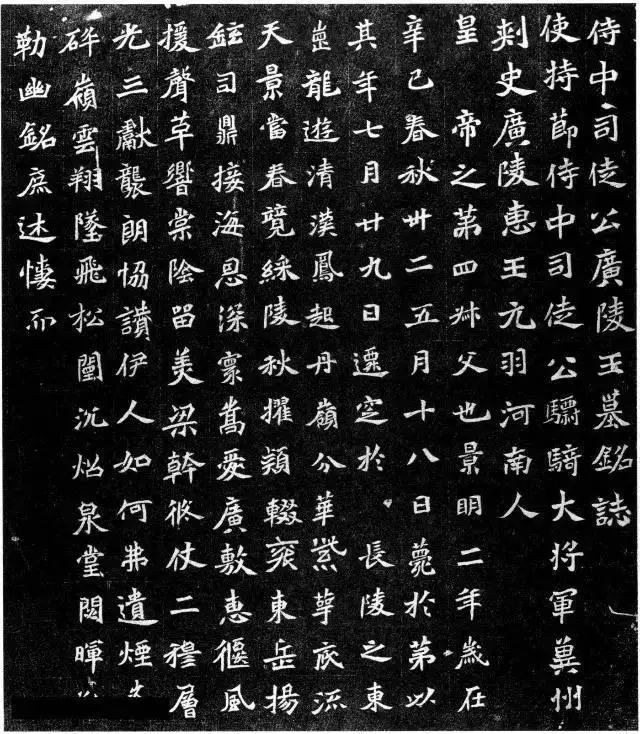 侍中司徒公廣陵王墓銘誌
使持節侍中司徒公驃騎大將軍冀州
刺史廣陵惠王元羽河南人
皇帝之第四叔父也景明二年歲在
辛巳春秋卅二五月十八日薨於第以
其年七月廿九日遷窆於長陵之東
崗龍遊清漢鳳起丹嶺分華紫萼底流
天景當春競綵陵秋擢穎轍奕東岳揚
鉉司鼎接海恩深寮嵩愛廣敷惠偃風
援聲革響棠陰留美梁幹脩仗二穆層
光三獻襲朗協讚伊人如何弗遺煙
碎嶺雲翔墜飛松闈沉焰泉堂閟暉
勒幽銘庶述悽而